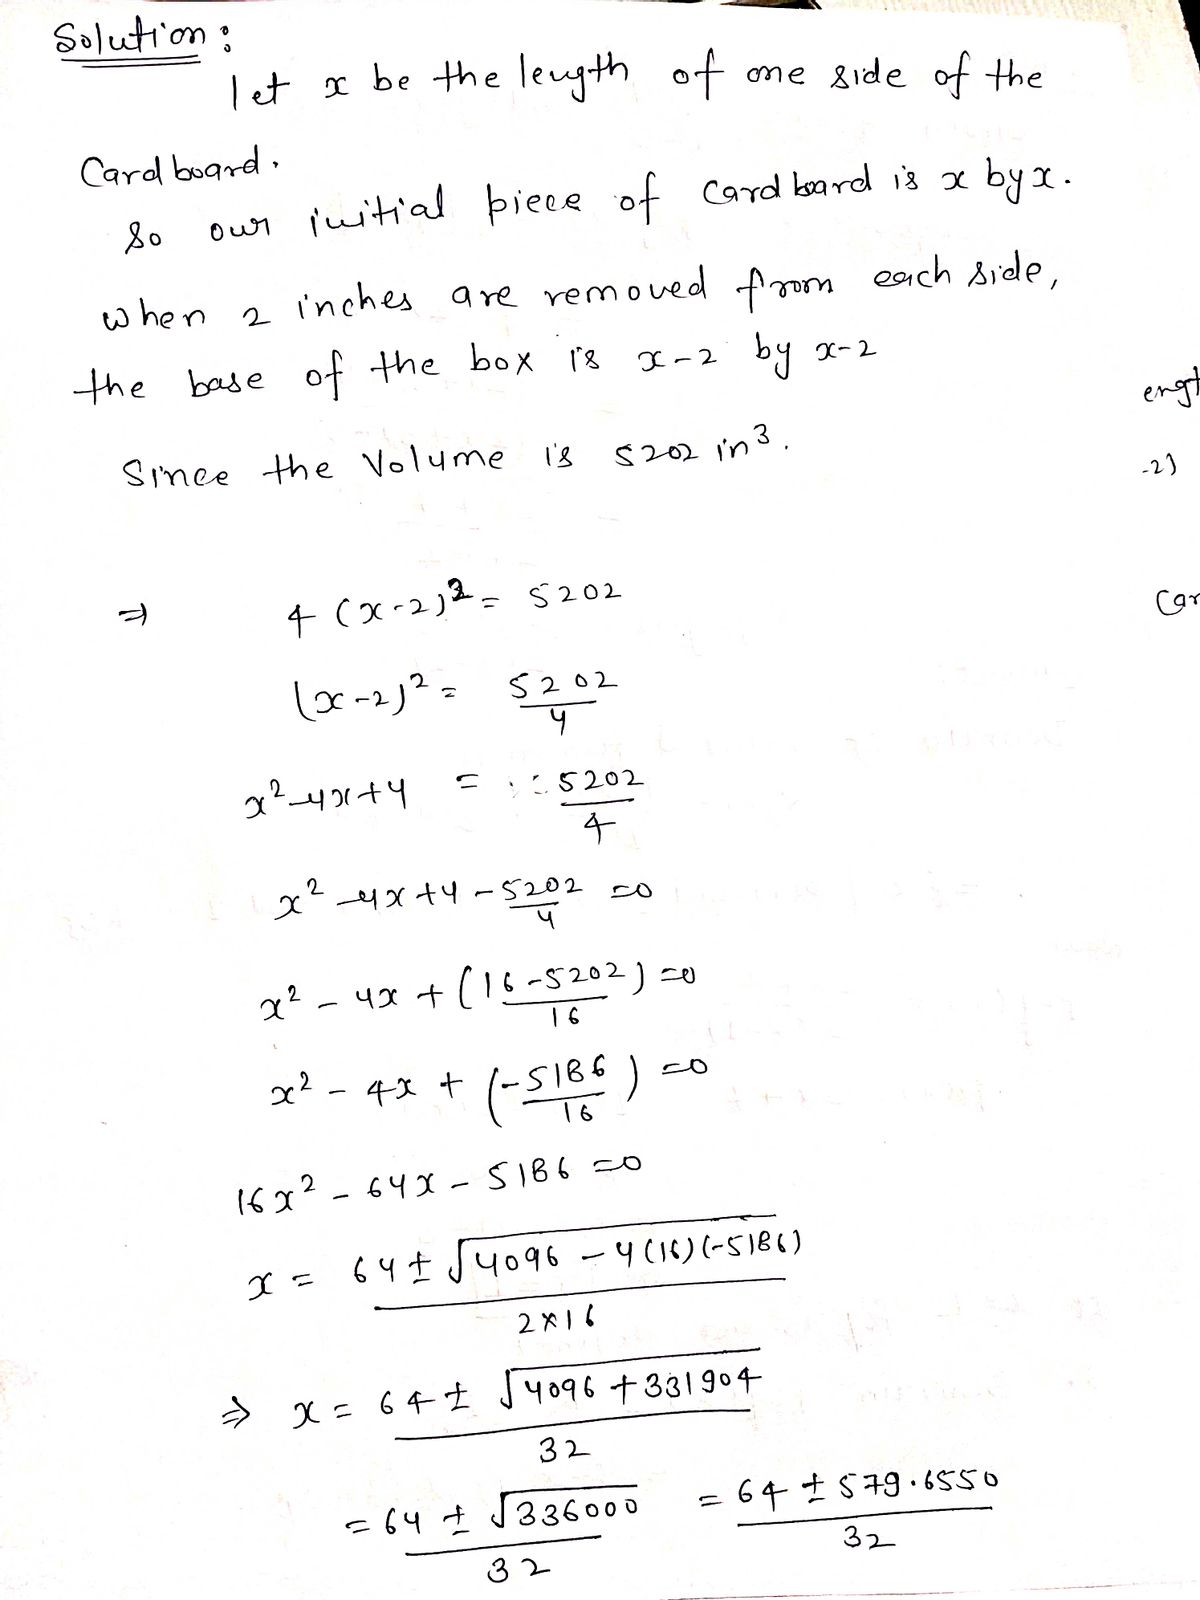 Solution:
let x be the length of one side of the
Cardboard.
So our initial piece of Cardboard is x by x.
when 2 inches are removed from each side,
the base of the box is x-2 by x-2
engt
Since the Volume is 5202 in³.
-2)
⇒ 4 (x-2)² = 5202
Car
(x-2)² = 5202/4
x² -4x+4 = 5202/4
x² -4x+4 - 5202/4 =0
x² - 4x + (16-5202/16) =0
x² - 4x + (-5186/16) =0
16x² - 64x - 5186 =0
x = 64 ± √4096 - 4(16)(-5186) / 2×16
⇒ x = 64 ± √4096 + 331904 / 32
= 64 ± √336000 / 32 = 64 ± 579.6550 / 32